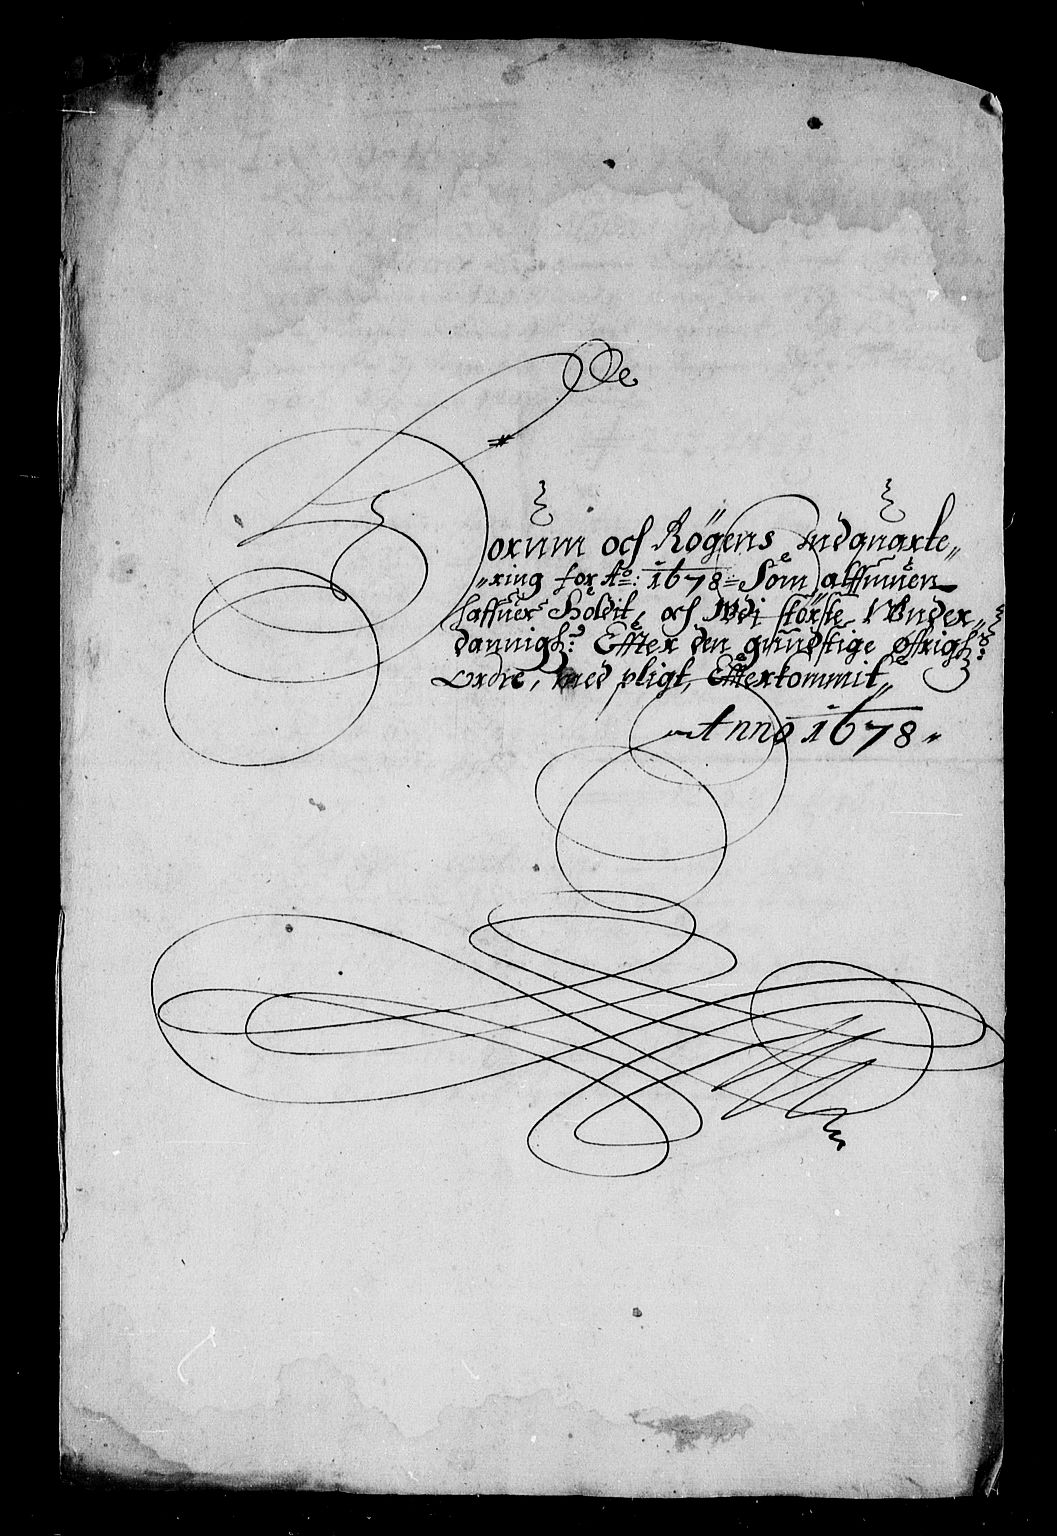 Hørum och Røgens Indquarte„
„ring for Aõ: 1678 = Som alffuuen
haffuer Holdit, och Wdi største VVnder„
dannigh: Effter den gunstige Øffrigh:
Ordre, med pligt, Effterkommit„
Anno 1678„